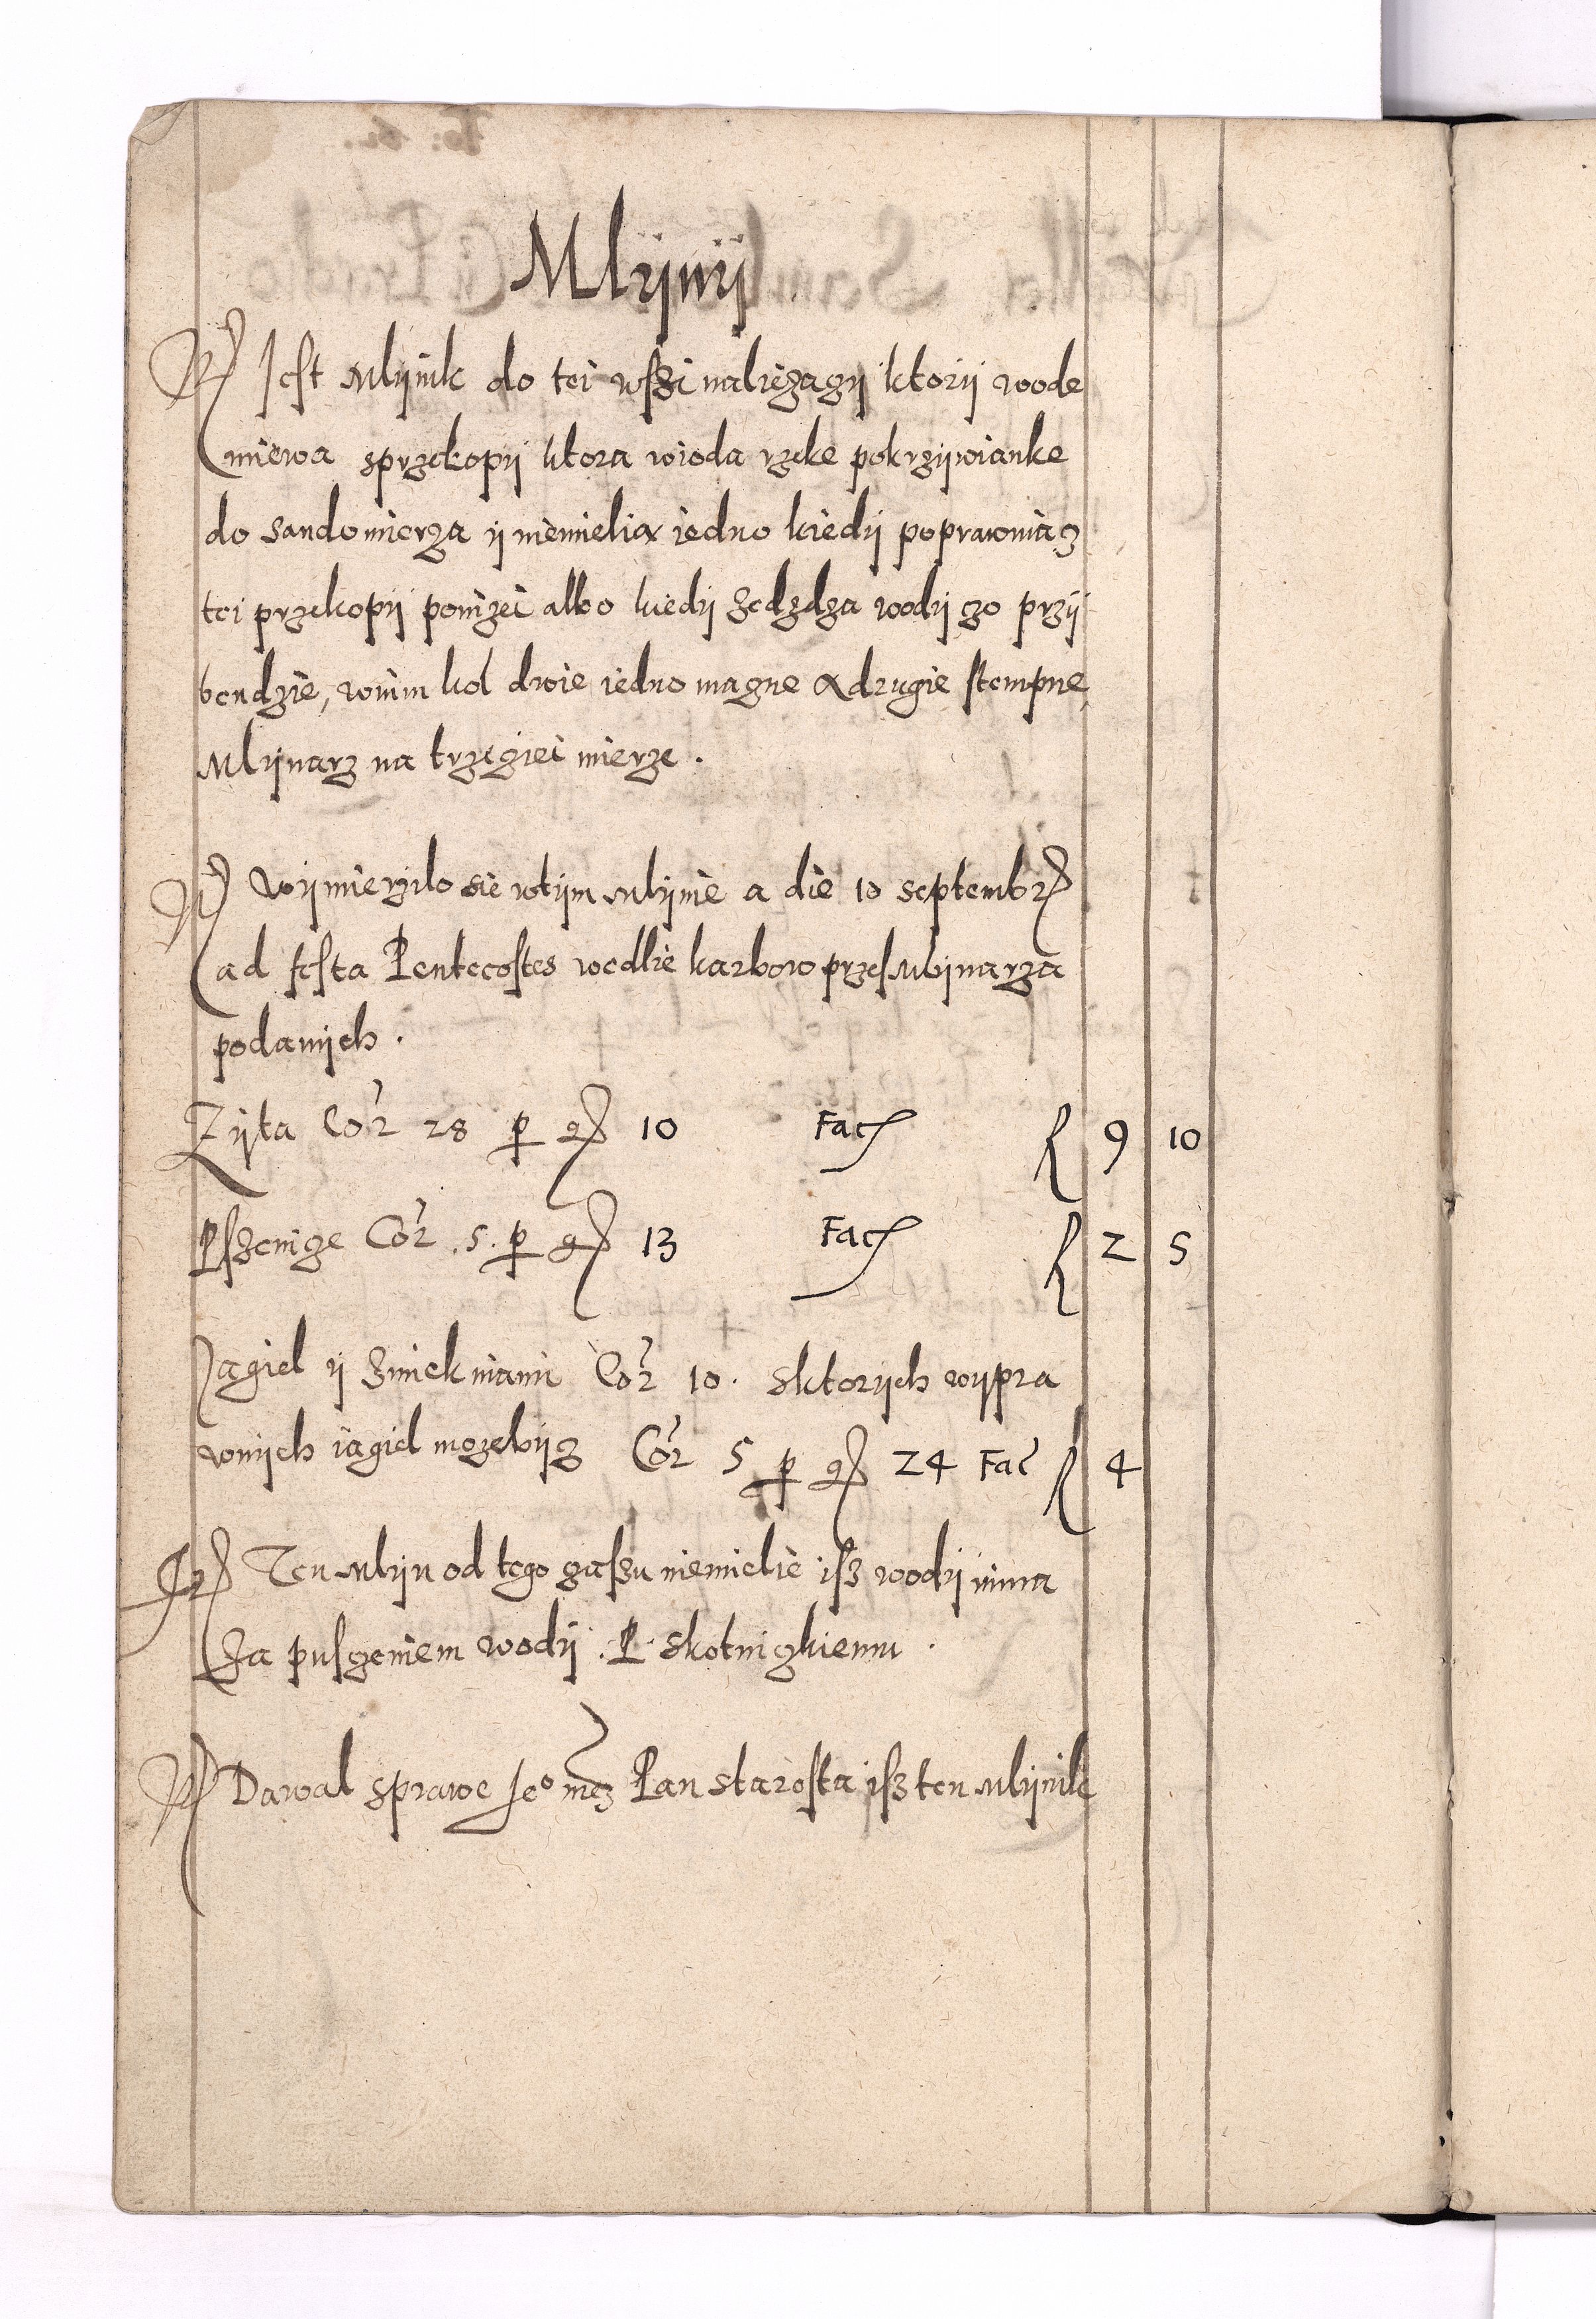 Mlijnij
Jest Mlijnik do tei wszi należączij ktorij wode
miewa sprzekopij ktora wioda rzeke pokrzijwianke
do Sandomierza ij niemielia iedno kiedij poprawnia z
tei przekopij poniżei albo kiedij zedzdza wodij co przij
bendzie, wnim kol dwie iedno mączne a drugie stempne
Mlijnarz na trzeciei mierze.
Wijmierzilo sie wtijm Mlijnie a die 10 septembr
ad festa Pentecostes wedlie karbow przes Mlijnarza
podanijch.
Zijta Cor 28 p gr 10 Fac fl 9 10
Pszenicze Cor .5. p gr 13 Fac fl 2 5
Jagiel ij Smiekniami Cor 10. sktorijch wijpra
wnijch iagiel mozebijcz Cor 5 p gr 24 Fac fl 4
Ten Mlijn od tego czaszu niemielie isz wodij nima
Za pusczeniem wodij. P. skotniczkiemu.
Dawal sprawe Jeo mcz Pan starosta isz ten Mlijnik